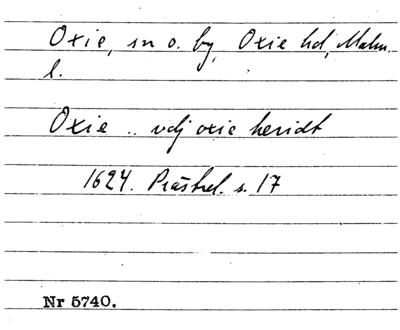 Oxie, sn o. by, Oxie hd, Malm.
l.
Oxie .. vdj oxie heridt
1624. Prästrel. s. 17
Nr 5740.